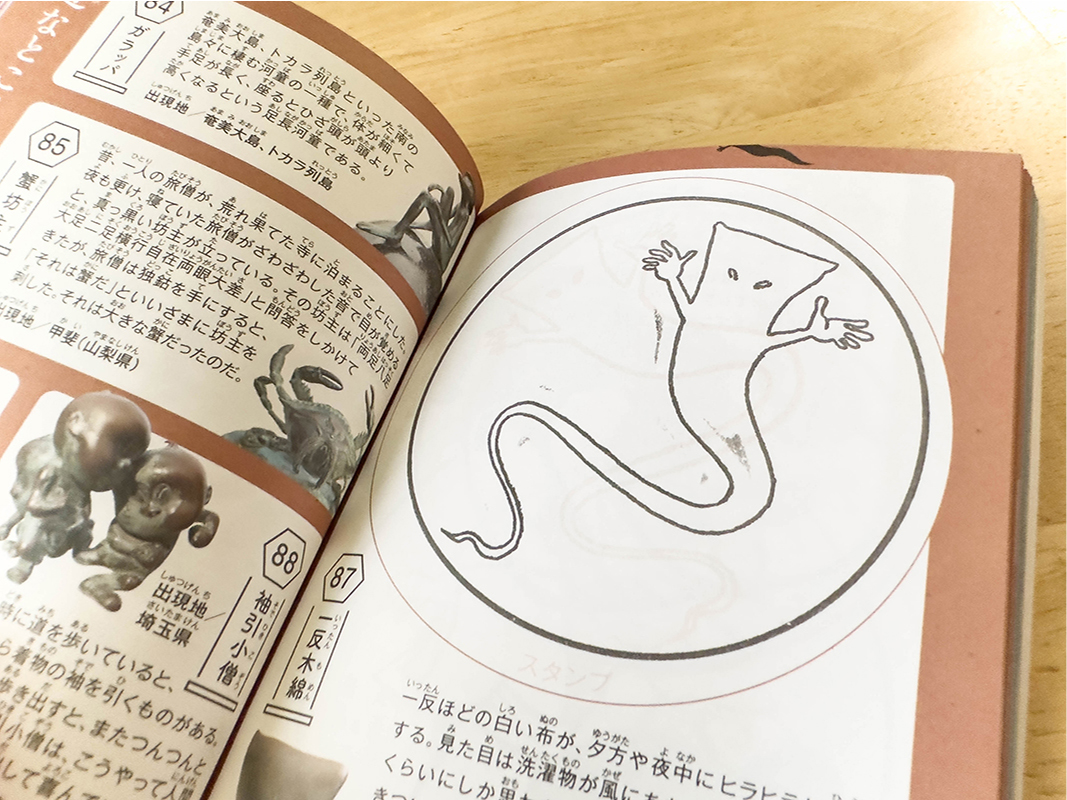 なとこ
84
ガラッパ
奄美大島、トカラ列島といった南の
島々に棲む河童の一種で、体が細くて
手足が長く、座るとひざ頭が頭より
高くなるという足長河童である。
出現地／奄美大島、トカラ列島
85
蟹坊
昔、一人の旅僧が、荒れ果てた寺に泊まることにした。
夜も更け、寝ていた旅僧がざわざわした音で目が覚める
と、真っ黒い坊主が立っている。その坊主は「両足八足
大足二足横行自在両眼大差」と問答をしかけて
きたが、旅僧は独鈷を手にすると、
「それは蟹だ」といいざまに坊主を
刺した。それは大きな蟹だったのだ。
出現地／甲斐(山梨県)
88
袖引小僧
出現地／
埼玉県
時に道を歩いていると、
ら着物の袖を引くものがある。
歩き出すと、またつんつんと
小僧は、こうやって人間
して喜んで
87
一反木綿
スタンプ
一反ほどの白い布が、夕方や夜中にヒラヒラ
する。見た目は洗濯物が風に
くらいにしか